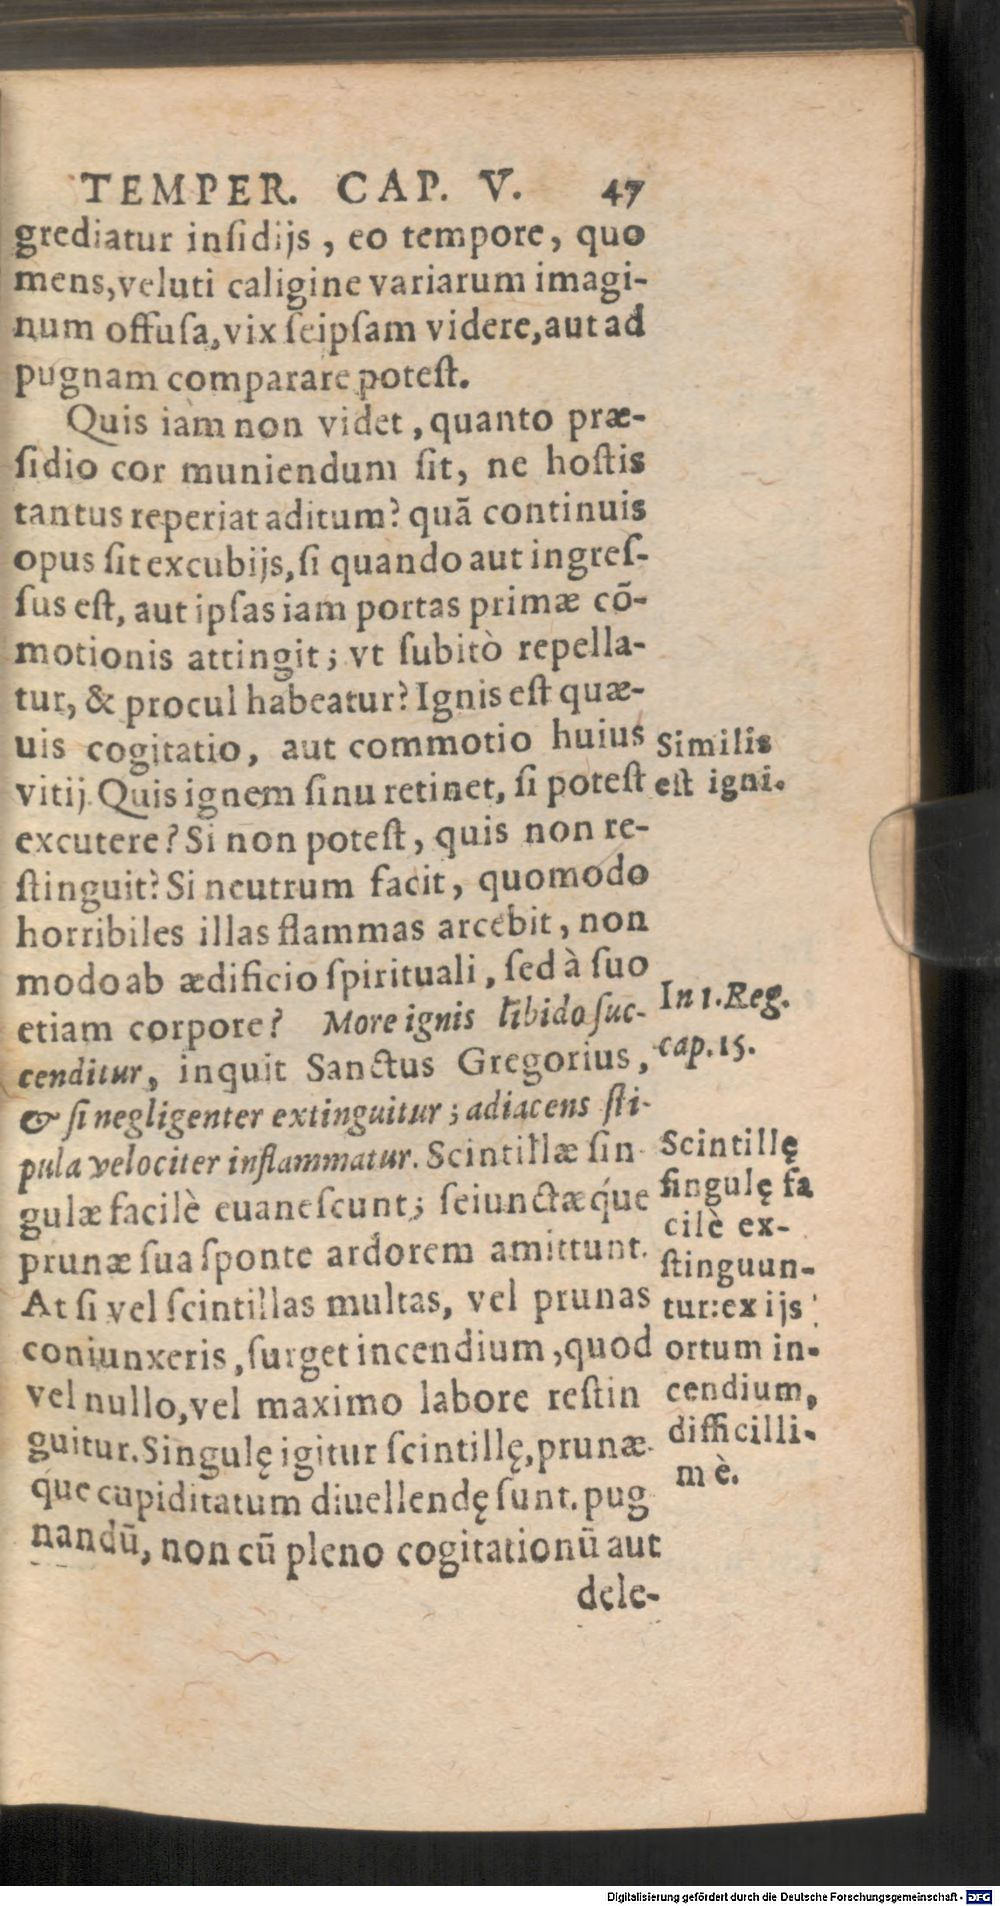 TEMPER. CAP. V. 47
grediatur inſidijs, eo tempore, quo
mens, veluti caligine variarum imagi-
num offuſa, vix ſeipſam videre, aut ad
pugnam comparare poteſt.
Quis iam non videt, quanto præ-
ſidio cor muniendum ſit, ne hoſtis
tantus reperiat aditum? quã continuis
opus ſit excubijs, ſi quando aut ingreſ-
ſus eſt, aut ipſas iam portas primæ cõ-
motionis attingit; vt ſubitò repella-
tur, & procul habeatur? Ignis eſt quæ-
uis cogitatio, aut commotio huius
vitij. Quis ignem ſinu retinet, ſi poteſt
excutere? Si non poteſt, quis non re-
ſtinguit? Si neutrum facit, quomodo
horribiles illas flammas arcebit, non
modo ab ædificio ſpirituali, ſed à ſuo
etiam corpore? More ignis libido ſuc-
cenditur, inquit Sanctus Gregorius,
& ſi negligenter extinguitur; adiacens ſti-
pula velociter inflammatur. Scintillæ ſin-
gulæ facilè euaneſcunt; ſeiunctæq́ue
prunæ ſua ſponte ardorem amittunt.
At ſi vel ſcintillas multas, vel prunas
coniunxeris, ſurget incendium, quod
vel nullo, vel maximo labore reſtin
guitur. Singulę igitur ſcintillę, prunæ-
que cupiditatum diuellendę ſunt. pug
nandũ, non cũ pleno cogitationũ aut
dele-
Similis
eſt igni.
In 1. Reg.
cap. 15.
Scintillę
ſingulę fa
cilè ex-
ſtinguun-
tur: ex ijs
ortum in-
cendium,
difficilli-
mè.
Digitalisierung gefördert durch die Deutsche Forschungsgemeinschaft - DFG